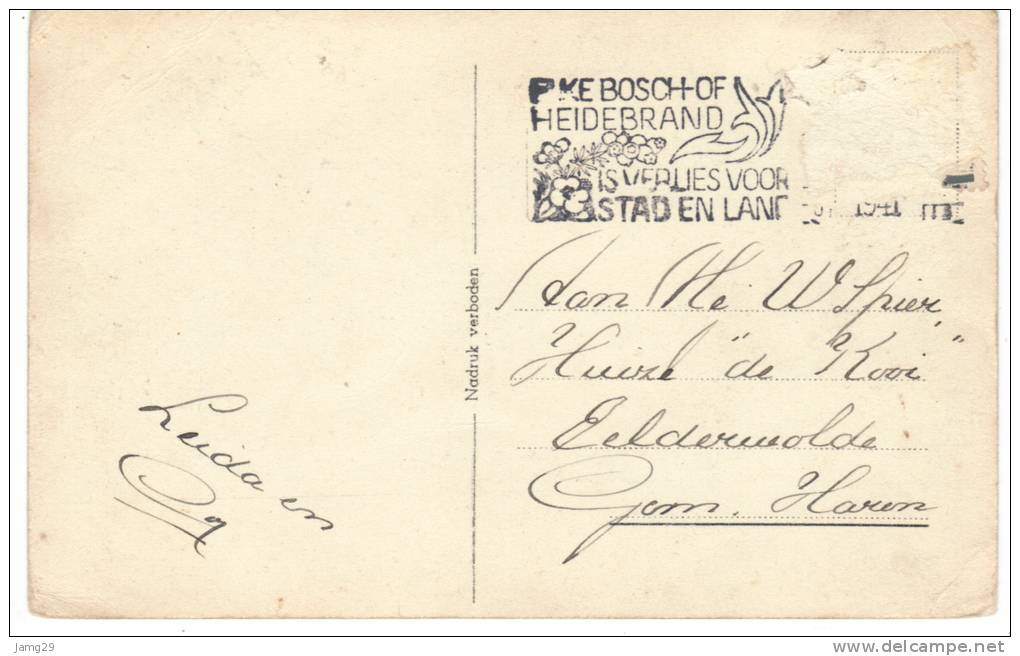 KE BOSCH-OF
HEIDEBRAND
IS VERLIES VOOR
STAD EN LAND
1941
Nadruk verboden
Aan He. W Spier
Huize "de Kooi"
Eelderwolde
Gem. Haren
Leida en
Jamg29
delcampe.net